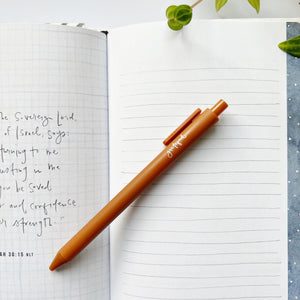 he Sovereign Lord,
of Israel, says:
turning to me
usting in me
you be saved.
and confidence
r strength."
AH 30:15 NLT